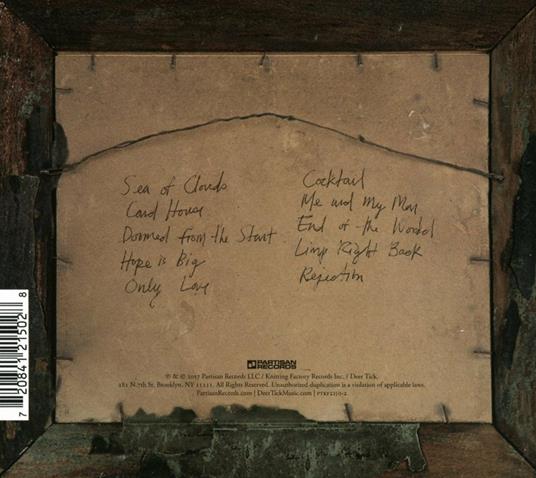 Sea of Clouds
Card House
Doomed from the Start
Hope is Big
Only Love
Cocktail
Me and My Man
End of the World
Limp Right Back
Rejection
PARTISAN
RECORDS
℗ & © 2017 Partisan Records LLC / Knitting Factory Records Inc. / Deer Tick.
281 N.7th St. Brooklyn, NY 11211. All Rights Reserved. Unauthorized duplication is a violation of applicable laws.
PartisanRecords.com | DeerTickMusic.com | PTKF2150-2
7 20841 21502 8